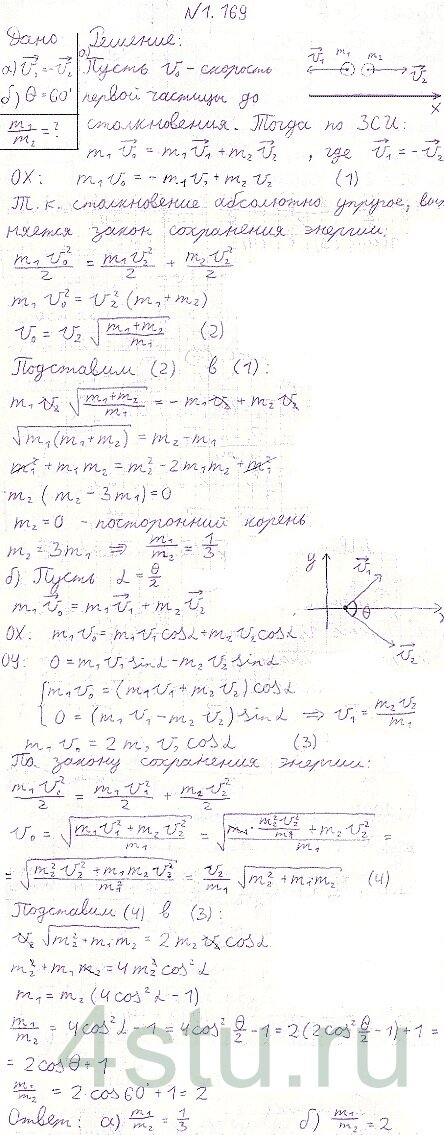 N 1.169
Дано
а) v⃗₁ = -v⃗₂
б) θ = 60°
m₁/m₂ = ?
Решение:
а)
Пусть v₀ - скорость
первой частицы до
столкновения. Тогда по ЗСИ:
v⃗₁ m₁ m₂ v⃗₂
x
m₁v⃗₀ = m₁v⃗₁ + m₂v⃗₂ , где v⃗₁ = -v⃗₂
OX: m₁v₀ = -m₁v₂ + m₂v₂ (1)
Т.к. столкновение абсолютно упругое, вып
няется закон сохранения энергии:
m₁v₀²/2 = m₁v₂²/2 + m₂v₂²/2
m₁v₀² = v₂²(m₁+m₂)
v₀ = v₂ √((m₁+m₂)/m₁) (2)
Подставим (2) в (1):
m₁v₂ √((m₁+m₂)/m₁) = -m₁v₂ + m₂v₂
√(m₁(m₁+m₂)) = m₂-m₁
m₁² + m₁m₂ = m₂² - 2m₁m₂ + m₁²
m₂(m₂-3m₁)=0
m₂=0 - посторонний корень
m₂ = 3m₁ ⇒ m₁/m₂ = 1/3
б) Пусть α = θ/2
y v⃗₁
θ
v⃗₂
m₁v⃗₀ = m₁v⃗₁ + m₂v⃗₂
OX: m₁v₀ = m₁v₁cosα + m₂v₂cosα
OY: 0 = m₁v₁sinα - m₂v₂sinα
{ m₁v₀ = (m₁v₁+m₂v₂)cosα
0 = (m₁v₁-m₂v₂)sinα ⇒ v₁ = m₂v₂/m₁
m₁v₀ = 2m₂v₂cosα (3)
По закону сохранения энергии:
m₁v₀²/2 = m₁v₁²/2 + m₂v₂²/2
v₀ = √((m₁v₁²+m₂v₂²)/m₁) = √((m₁·m₂²v₂²/m₁² + m₂v₂²)/m₁) =
= √((m₂²v₂²+m₁m₂v₂²)/m₁²) = v₂/m₁ √(m₂²+m₁m₂) (4)
Подставим (4) в (3):
v₂√(m₂²+m₁m₂) = 2m₂v₂cosα
m₂²+m₁m₂ = 4m₂²cos²α
m₁ = m₂(4cos²α-1)
m₁/m₂ = 4cos²α-1 = 4cos²θ/2-1 = 2(2cos²θ/2-1)+1 =
= 2cosθ+1
m₁/m₂ = 2·cos60°+1 = 2
Ответ: а) m₁/m₂ = 1/3 б) m₁/m₂ = 2
4stu.ru